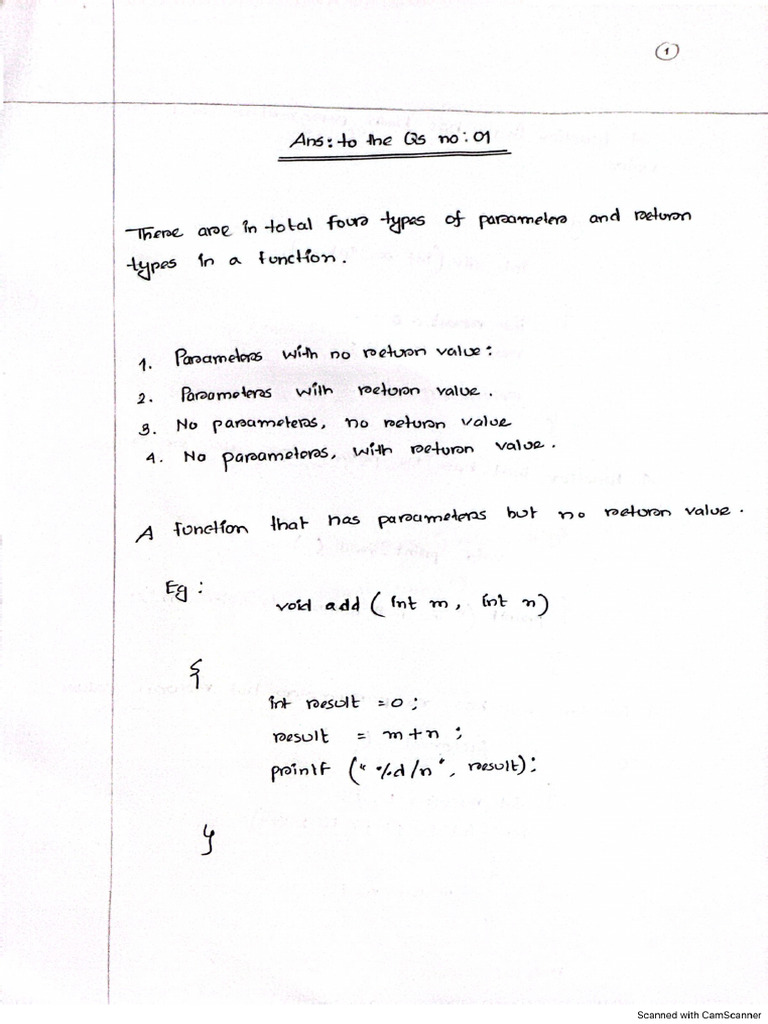 1
Ans: to the Qs no: 01
There are in total four types of parameters and return
types in a function.
1. Parameters with no return value:
2. Parameters with return value.
3. No parameters, no return value
4. No parameters, with return value.
A function that has parameters but no return value.
Eg:
void add (int m, int n)
{
int result = 0;
result = m+n;
printf ("%d/n", result);
}
Scanned with CamScanner